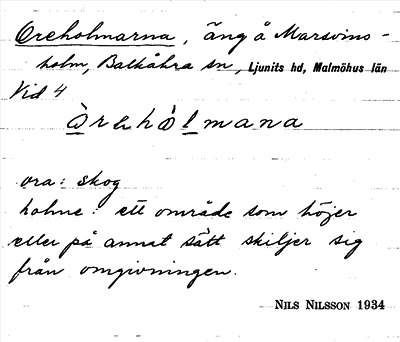 Oreholmarna, äng å Marsvins-
holm, Balkåkra sn, Ljunits hd, Malmöhus län
Vid 4
òrehòlmana
ora: skog
holme: ett område som höjer
eller på annat sätt skiljer sig
från omgivningen.
NILS NILSSON 1934